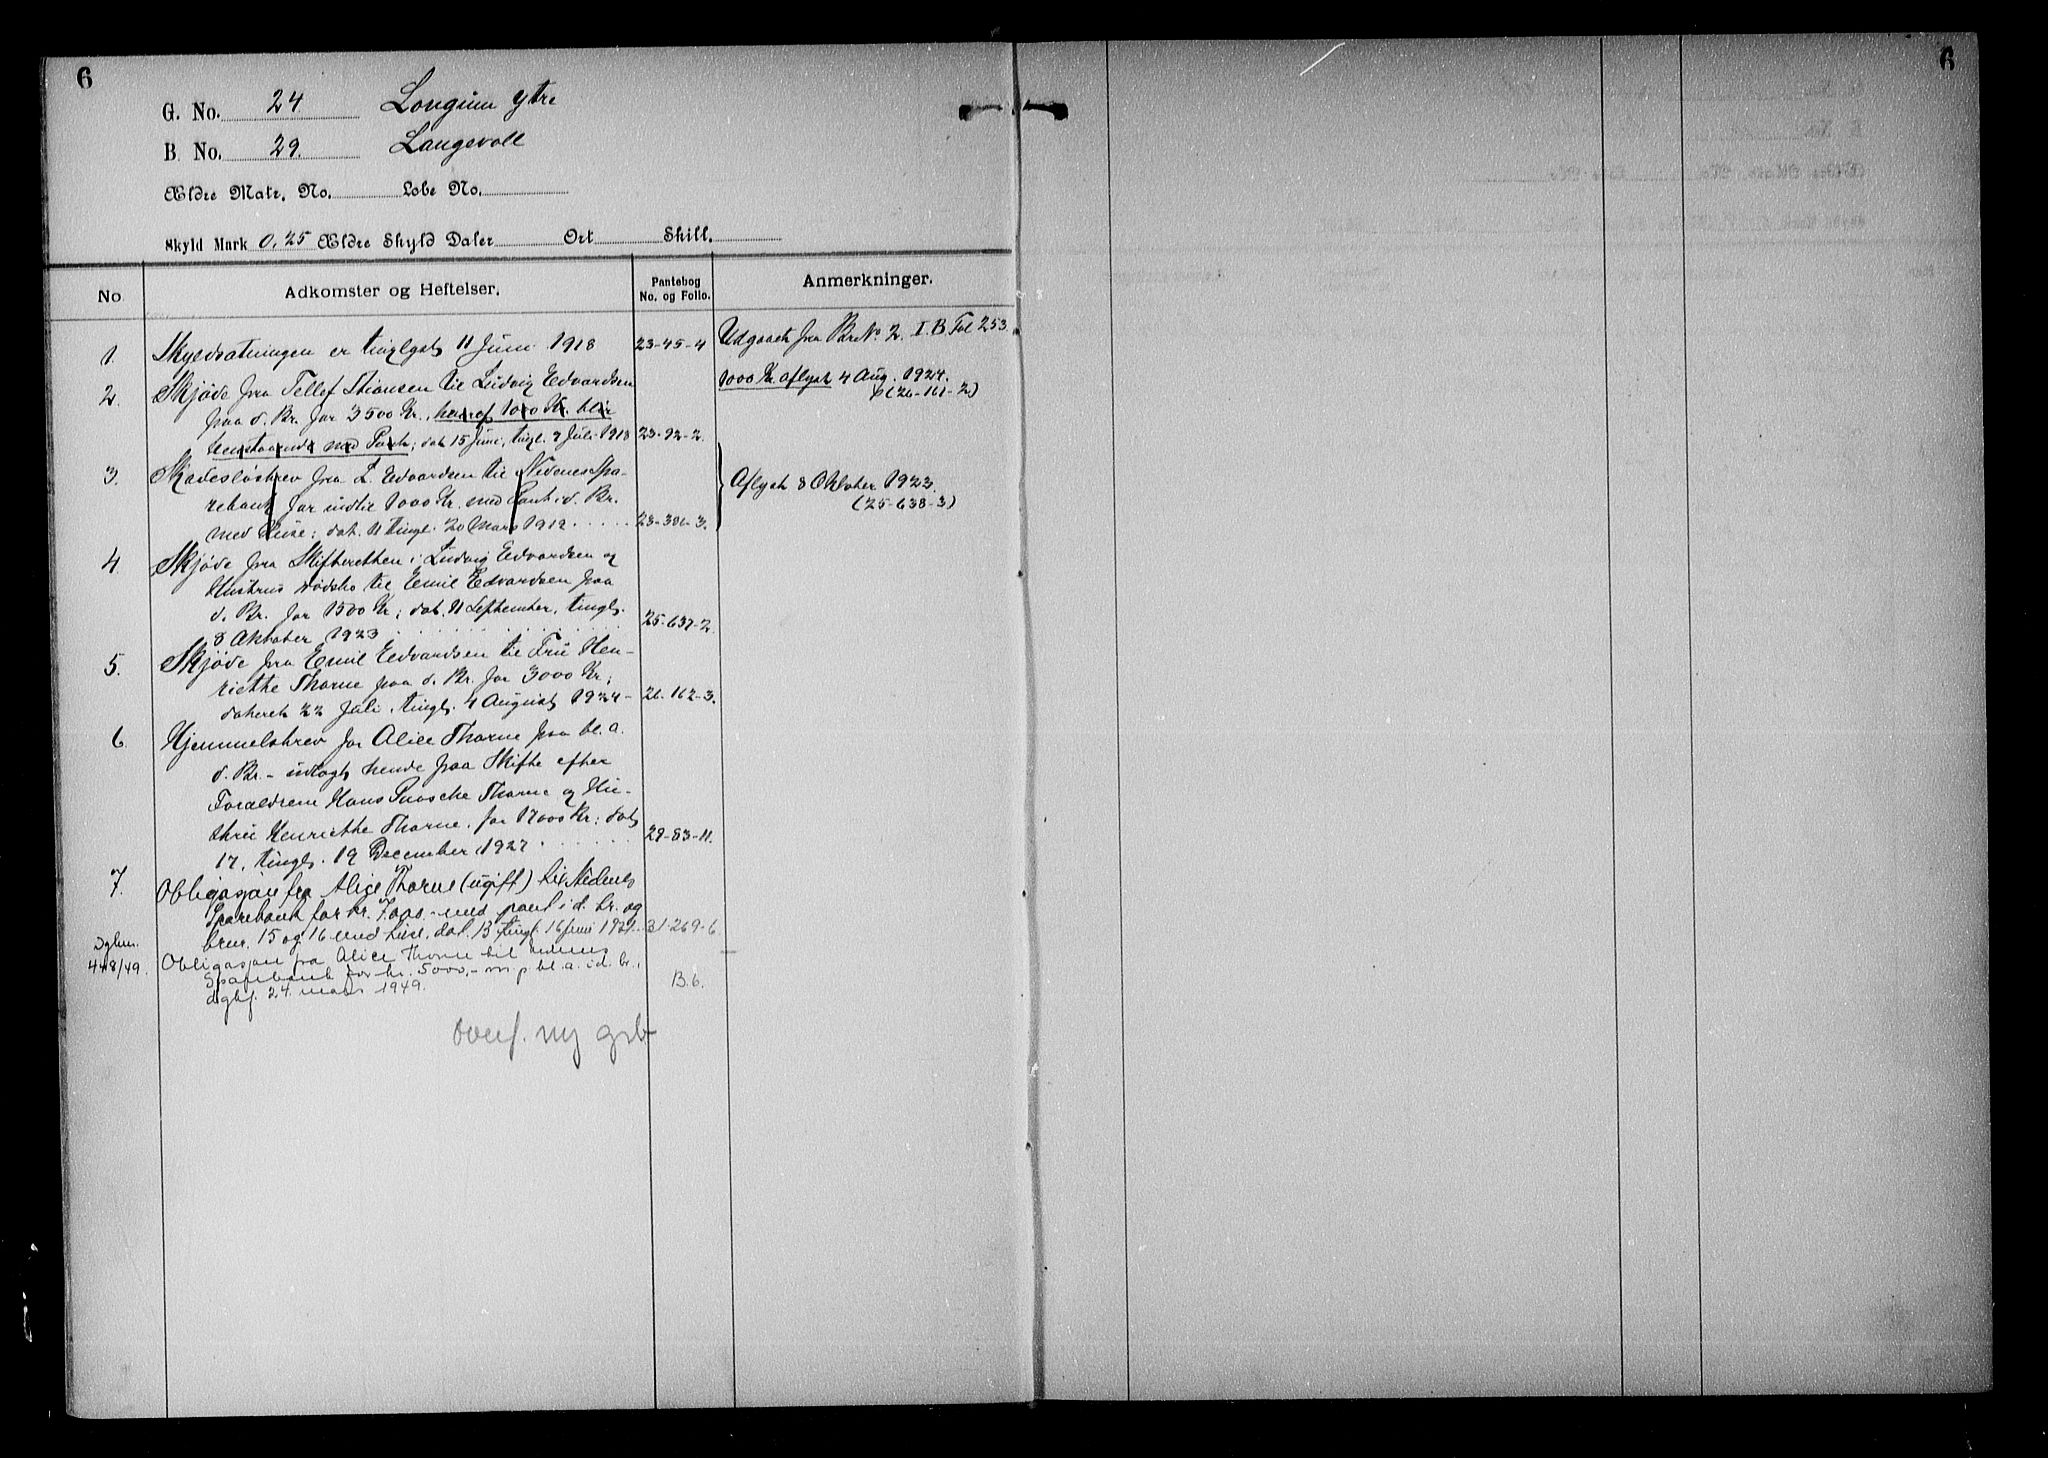 6
6
G. No. 24 Longum ytre
B No. 29. Langsvoll
Ældre Matr. No. Løbe No.
Skyld Mark 0,25 Ældre Skyld Daler Ort Skill.
No Adkomster og Heftelser. Pantebog No. og Folio. Anmerkninger.
1. Skyldsætningen er tinglyst 11 Juni 1918 23-45-4 Udgaaet fra Br. No 2. I.B. Fol 253.
2. Skjøde fra Tellef Stiansen til Ludvig Edvardsen 1000 Kr aflyst 4 Aug. 1924.
paa d. Br. for 3500 Kr., heraf 1000 Kr. blir (26-161-2)
henstaaende med Pant; dat 15 Juni, tingl. 9 Juli 1918 23-92-2.
3. Skadesløsbrev fra L. Edvardsen til Nedenes Spa- Aflyst 8 Oktober 1923.
rebank for indtil 1000 Kr. med Pant i d. Br. (25-638-3)
med Huse; dat. 11 tingl. 20 Mars 1919 23-306-3.
4. Skjøde fra Skifteretten i Ludvig Edvardsen og
Hustrus Dødsbo til Emil Edvardsen paa
d. Br. for 1500 Kr; dat. 11 September, tingl. 25-637-2.
8 Oktober 1923
5. Skjøde fra Emil Edvardsen til Frü Hen-
riette Thorne paa d. Br. for 3000 Kr;
dateret 22 Juli, tingl. 4 August 1924 - 26-162-3.
6. Hjemmelsbrev for Alice Thorne paa bl. a.
d. Br. - udlagt hende paa Skifte efter
Forældrene Hans Thorne og Hu-
stru Henriette Thorne, for 17000 Kr: dat 29-83-11.
17, tingl. 19 December 1927
7. Obligasjon fra Alice Thorne (ugift) til Nedenes
Sparebank for kr. 7000.- med pant i d. br. og
brnr. 15 og 16 med huse, dat. 13 tingl. 16 juni 31-269-6
Dgbnr. Obligasjon fra Alice Thorne til Nedenes
448/49. Sparebank for kr. 5000,- m. p. bl. a. i d. br., B.6.
dgbf. 24. mars 1949.
overf. ny grb